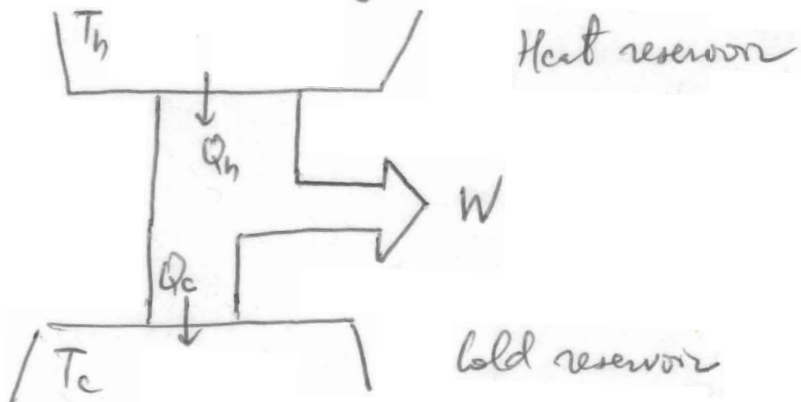 T_h
Heat reservoir
Q_h
W
Q_c
T_c
Cold reservoir